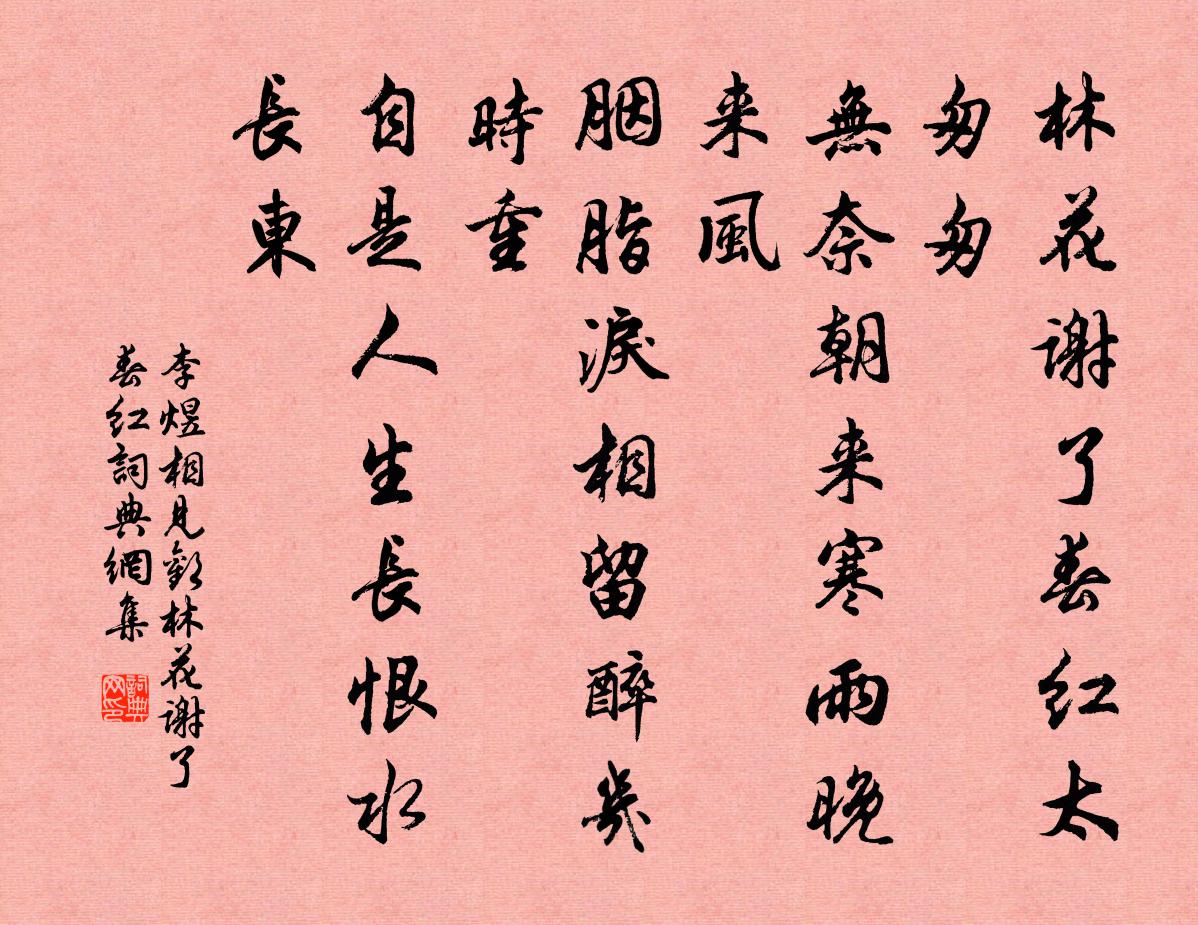 林花謝了春紅太
匆匆
無奈朝来寒雨晚
来風
胭脂淚相留醉幾
時重
自是人生長恨水
長東
李煜相見歡林花謝了
春紅詞典網集
詞典
网印